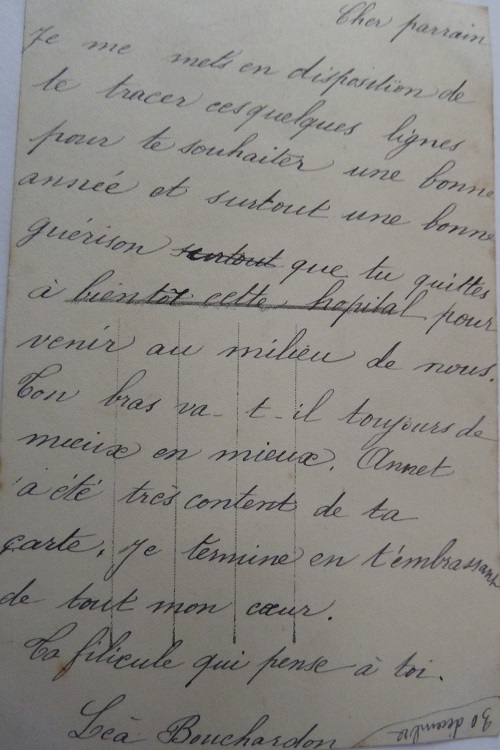 Cher parrain
Je me mets en disposition de
te tracer ces quelques lignes
pour te souhaiter une bonne
année et surtout une bonne
guérison surtout que tu quittes
à bientôt cette hopital pour
venir au milieu de nous.
Ton bras va-t-il toujours de
mieux en mieux. Annet
a été très content de ta
carte. Je termine en t'embrassant
de tout mon cœur.
Ta filieule qui pense à toi.
Léa Bouchardon
30 décembre